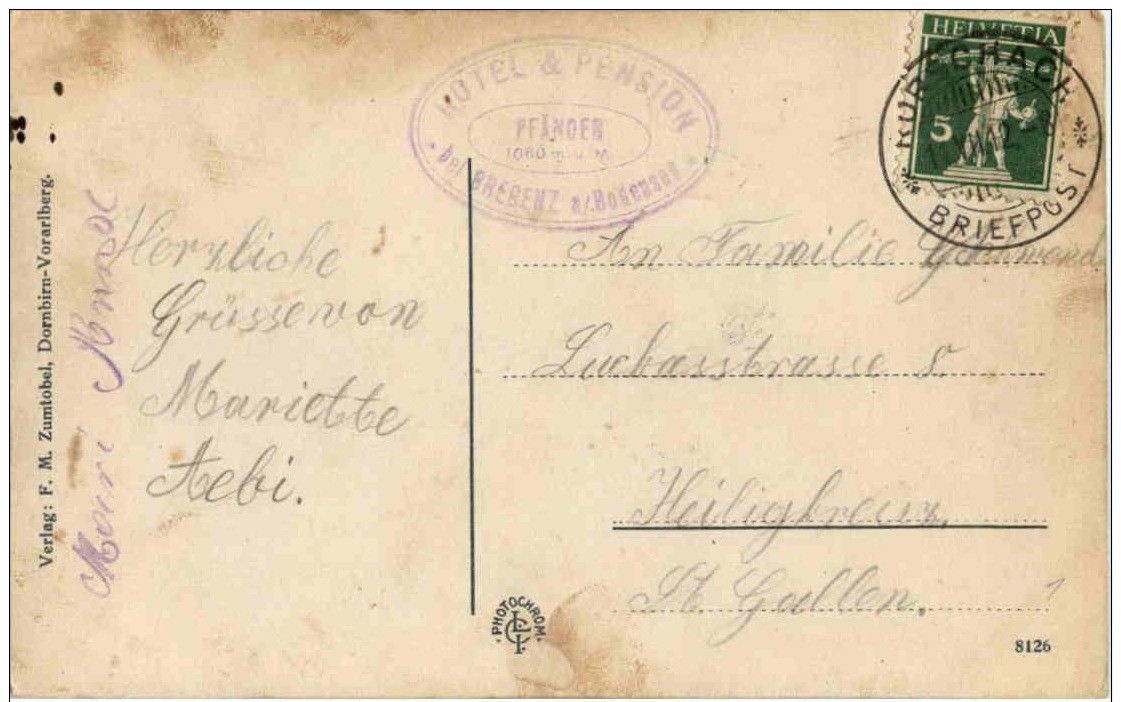 HOTEL & PENSION
PFÄNDER
1060 m ü. M.
bei BREGENZ a/Bodensee
HELVETIA
5
RORSCHACH
XII.12
BRIEFPOST
Herzliche
Grüsse von
Mariette
Aebi.
An Familie
Lukasstrasse 8.
Heiligkreuz,
St. Gallen,
Verlag: F. M. Zumtobel, Dornbirn-Vorarlberg.
PHOTOCHROM.
8126